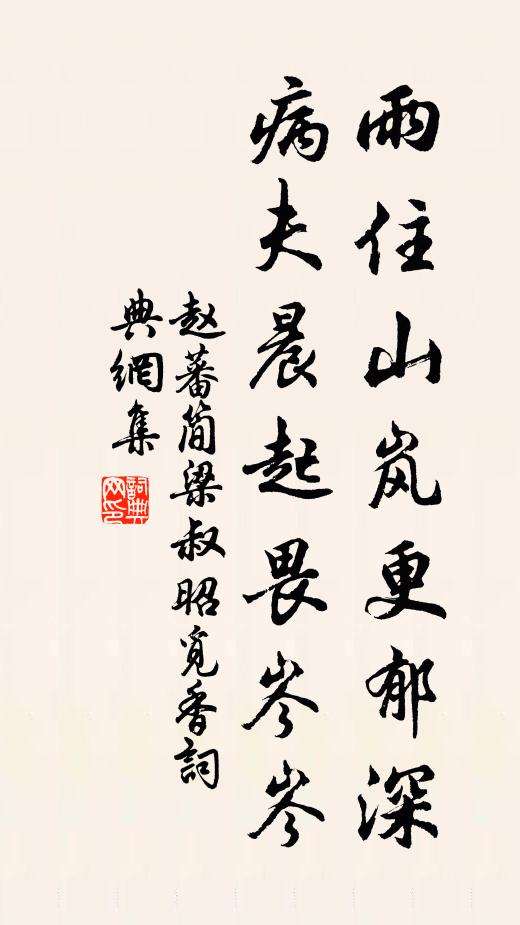 雨住山岚更郁深
病夫晨起畏岑岑
赵蕃简梁叔昭觅香詞
典網集
詞典网印